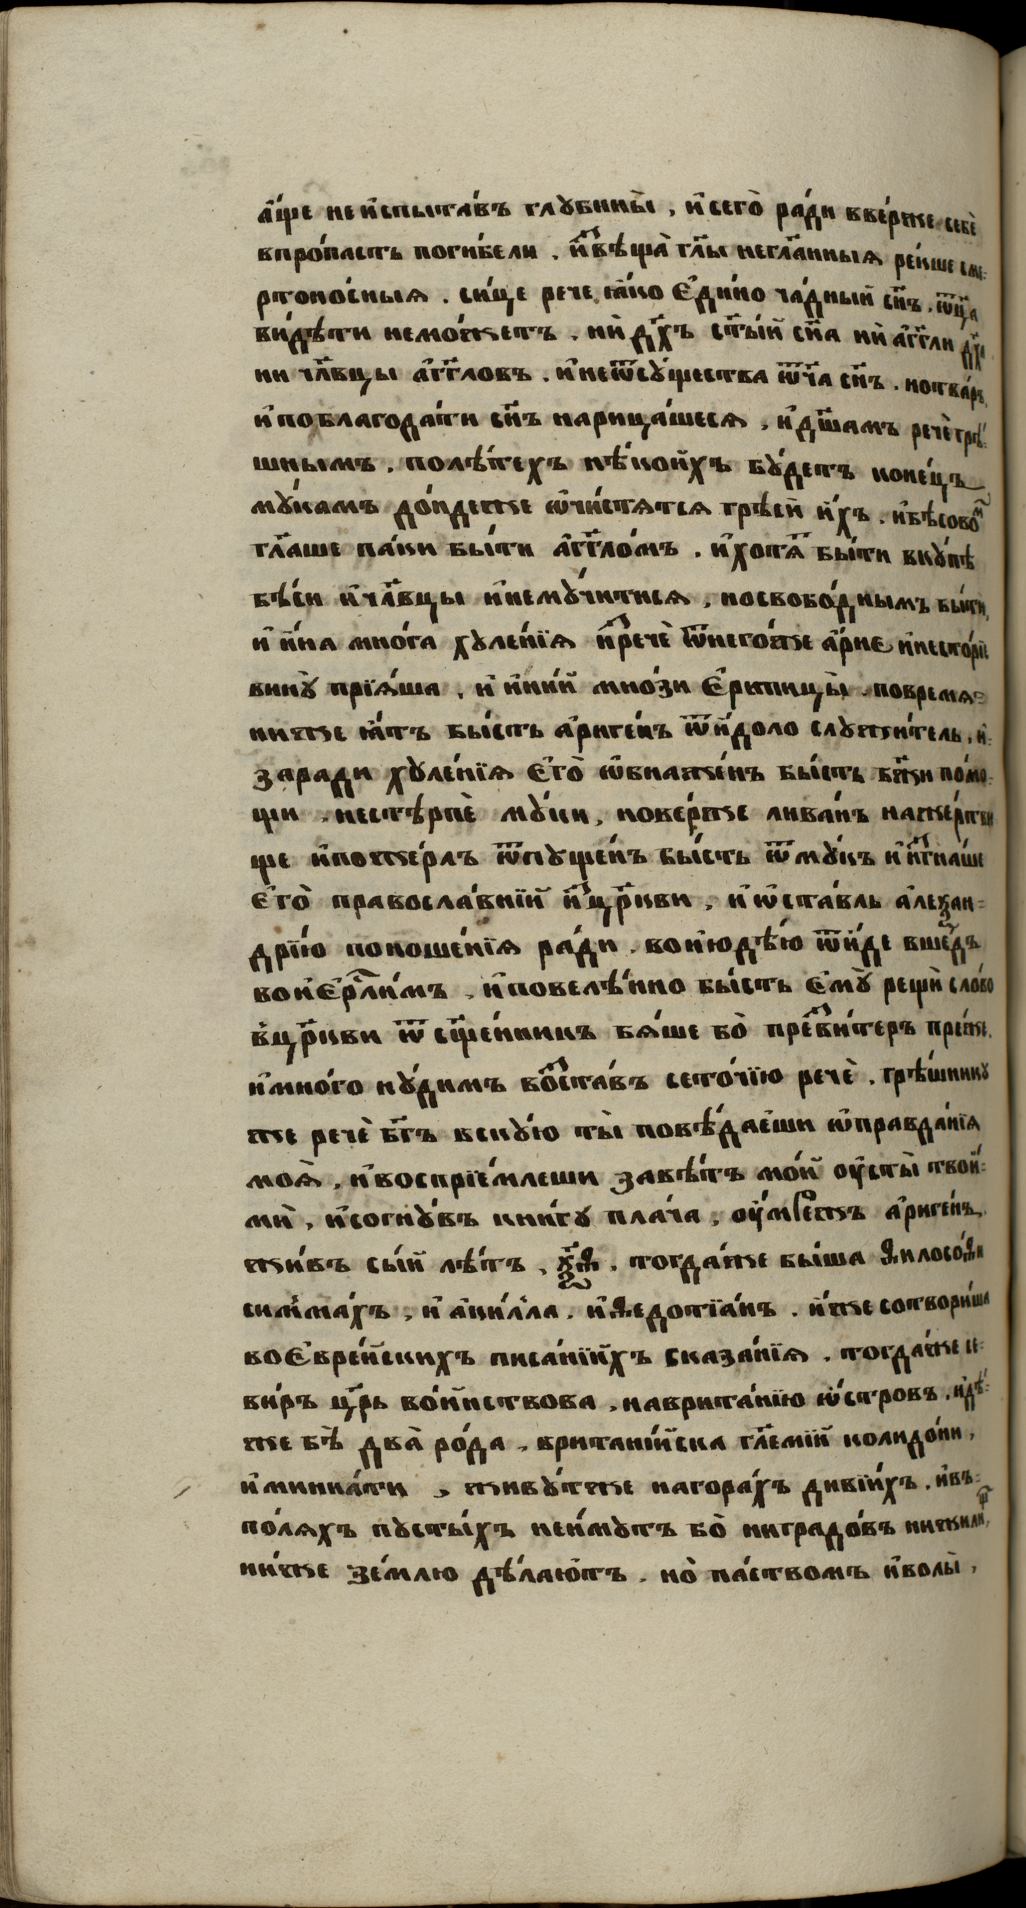 а҆́ще неи҆спыта́въ глꙋбины̀, и҆сего̀ ра́ди вве́рже себѐ
впро́пасть поги́бели. и҆звѣща̀ гл҃ы негл҃анныѧ ре́кше сме-
ртоно́сныѧ. си́це рече, ꙗ҆́ко є҆ди́но ча́дный сн҃ъ, ѿц҃а
ви́дѣти немо́жетъ, ни́ дх҃ъ ст҃ы́й сн҃а ни́ а҆́гг҃ли дх҃а
ни чл҃вцы а҆́гг҃ловъ. и҆неѿсꙋ́щества ѿч҃а сн҃ъ, нотва́рь,
и҆поблагода́ти сн҃ъ нарица́шесѧ, и҆дш҃амъ речѐ грѣ́-
шнымъ, полѣ́техъ нѣ́кои҆хъ бꙋ́детъ коне́цъ
мꙋ́камъ до́ндеже ѡ҆чи́стѧтсѧ грѣси́ и҆́хъ, и҆бѣсово́мъ
гл҃аше па́ки бы́ти а҆́гг҃ло́мъ, и҆хотѧ́щ бы́ти вкꙋ́пѣ
бѣ́си и҆чл҃вцы и҆немꙋ́читисѧ, носвобо́днымъ бы́ти,
и҆ и҆́на мно́га хꙋле́нїѧ и҆зречѐ ѿнего́же а҆́рие и҆несто́рїе
винꙋ̀ прїѧ́ша, и҆ и҆ні́й мно́зи є҆ритицы̀. повремѧ-
ниже ꙗ҆́тъ бы́сть а҆риге́нъ ѿи҆́доло слꙋжи́тель, и҆-
заради хꙋле́нїѧ є҆го̀ ѡ҆бнаже́нъ бы́сть бж҃и по́мо-
щи, нестѣ́рпѐ мꙋ́ки, нове́рже лива́нъ наже́ртви
ще и҆пожерлъ ѿпꙋще́нъ бы́сть ѿмꙋ́къ и҆ и҆згна́ше
є҆го̀ правосла́внїй и҆зцр҃кви, и҆ ѡ҆ста́вль а҆леѯан-
дрїю поноше́нїѧ ра́ди, вои҆ю҆дѣ́ю ѿи҆́де вше́дъ
вои҆є҆рⷭ҇ли́мъ, и҆повелѣ́нно бы́сть є҆мꙋ̀ рещѝ сло́во
в҆цр҃кви ѿ сщ҃е́нникъ бѧ́ше бо̀ презви́теръ пре́же,
и҆мно́го нꙋ́димъ воста́въ сето́чїю речѐ, грѣ́шникꙋ
же речѐ бг҃ъ вскꙋ́ю ты̀ повѣ́даеши ѡ҆правда́нїѧ
моѧ̀, и҆воспрїе́млеши завѣ́тъ мо́й оу҆сты̀ твои́-
мѝ, и҆согнꙋ́въ кни́гꙋ пла́ча, оу҆́мре́тъ а҆риге́нъ,
жи́въ сы́й лѣ́тъ, ѯ҃ѳ, тогда́же бы́ша ѳилосо́ѳи
симма́хъ, и҆ а҆ки́лла, и҆ ѳедотїа́нъ, и҆́же сотвори́ша
воє҆вре́йскихъ писа́нїихъ сказа́нїѧ, тогда́же се-
ви́ръ цр҃ь во́инствова, набрита́нїю ѡ҆́стровъ, и҆дѣ́-
же бѣ̀ два̀ ро́да, британі́йска гл҃емїй колидо́ни,
и҆миниа́ти, живꙋ́тже нагора́хъ ди́вїихъ, и҆въ-
по́лѧхъ пꙋсты́хъ неи́мꙋтъ бо̀ ниградо́въ нижили́щ,
ни́же зе́млю дѣ́лаютъ, но̀ па́ствомъ и҆волы̀,